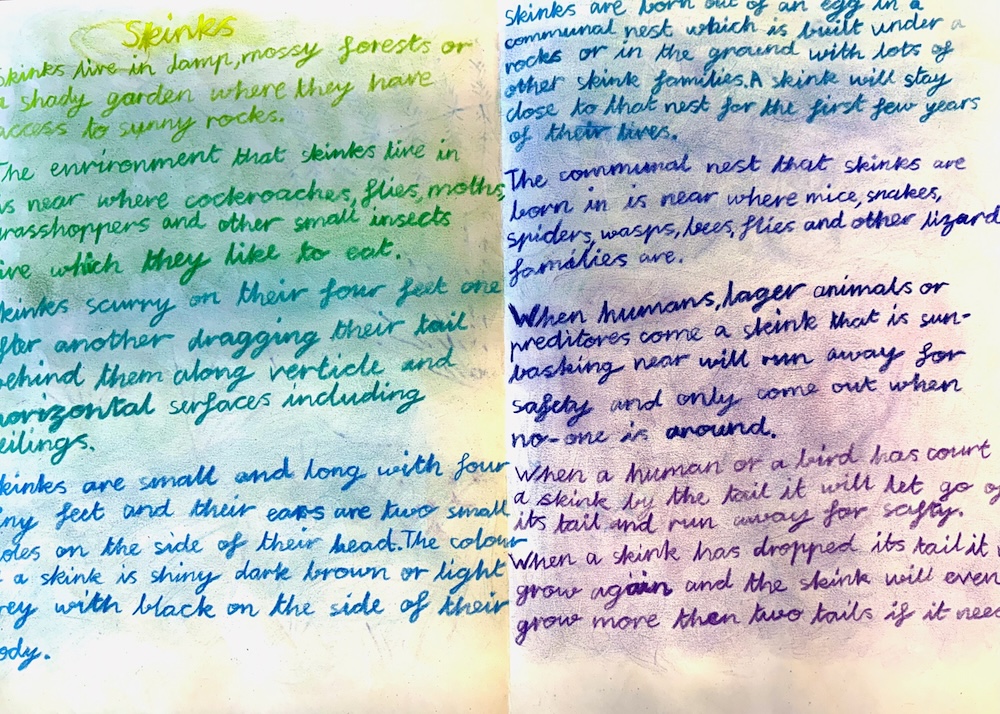 Skinks
Skinks live in damp, mossy forests or
a shady garden where they have
access to sunny rocks.
The environment that skinks live in
is near where cockroaches, flies, moths,
grasshoppers and other small insects
live which they like to eat.
Skinks scurry on their four feet one
after another dragging their tail
behind them along verticle and
horizontal surfaces including
ceilings.
Skinks are small and long with four
tiny feet and their ears are two small
holes on the side of their head. The colour
of a skink is shiny dark brown or light
grey with black on the side of their
body.
Skinks are born out of an egg in a
communal nest which is built under a
rocks or in the ground with lots of
other skink families. A skink will stay
close to that nest for the first few years
of their lives.
The communal nest that skinks are
born in is near where mice, snakes,
spiders, wasps, bees, flies and other lizard
families are.
When humans, lager animals or
preditores come a skink that is sun-
basking near will run away for
safety and only come out when
no-one is around.
When a human or a bird has court
a skink by the tail it will let go of
its tail and run away for safty.
When a skink has dropped its tail it
grow again and the skink will even
grow more then two tails if it need